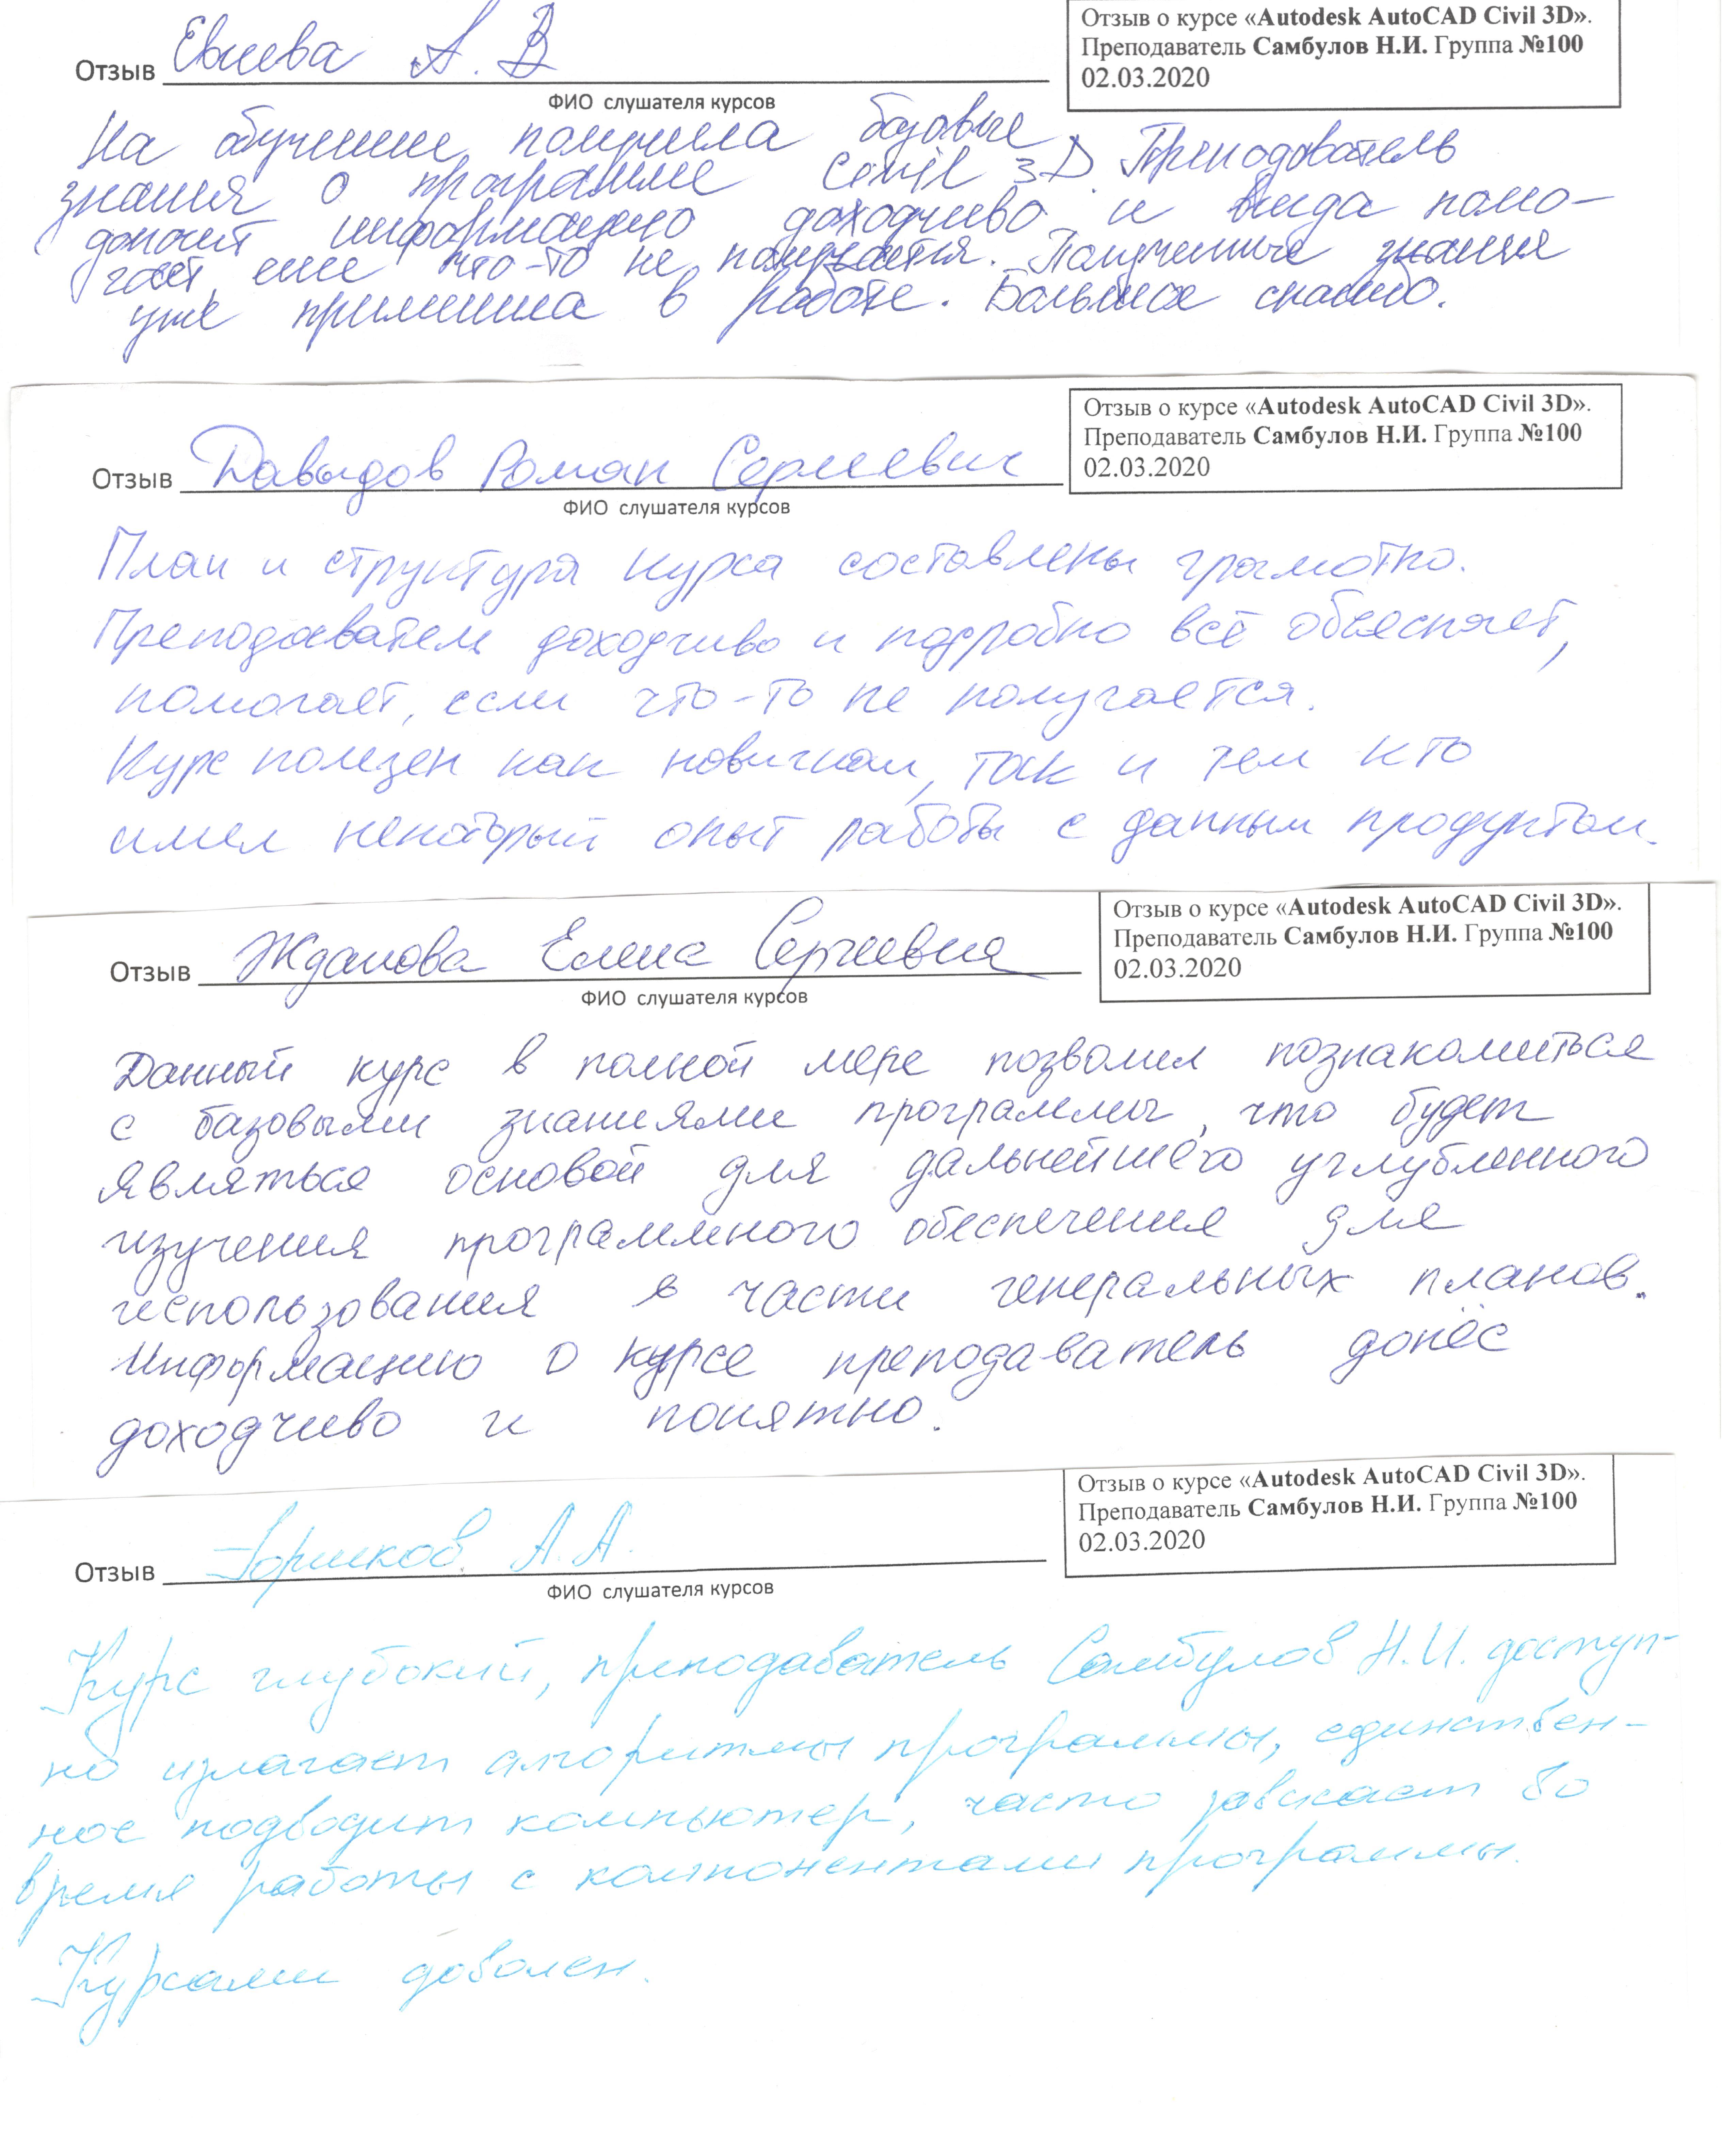 Отзыв о курсе «Autodesk AutoCAD Civil 3D».
Преподаватель Самбулов Н.И. Группа №100
02.03.2020
Отзыв А. В
ФИО слушателя курсов
На обучение получила базовые
знания о программе Civil 3D. Преподаватель
доносит информацию доходчиво и всегда помо-
гает, если что-то не получается. Полученные знания
уже применила в работе. Большое спасибо.
Отзыв о курсе «Autodesk AutoCAD Civil 3D».
Преподаватель Самбулов Н.И. Группа №100
02.03.2020
Отзыв Давыдов Роман Сергеевич
ФИО слушателя курсов
План и структура курса составлены грамотно.
Преподаватель доходчиво и подробно всё объясняет,
помогает, если что-то не получается.
Курс полезен как новичкам, так и тем кто
имел некоторый опыт работы с данным продуктом.
Отзыв о курсе «Autodesk AutoCAD Civil 3D».
Преподаватель Самбулов Н.И. Группа №100
02.03.2020
Отзыв Жданова Елена Сергеевна
ФИО слушателя курсов
Данный курс в полной мере позволил познакомиться
с базовыми знаниями программы, что будет
являться основой для дальнейшего углубленного
изучения программного обеспечения для
использования в части генеральных планов.
Информацию о курсе преподаватель донёс
доходчиво и понятно.
Отзыв о курсе «Autodesk AutoCAD Civil 3D».
Преподаватель Самбулов Н.И. Группа №100
02.03.2020
Отзыв А. А.
ФИО слушателя курсов
Курс глубокий, преподаватель Самбулов Н.И. доступ-
но излагает алгоритмы программы, единствен-
ное подводит компьютер, часто зависает во
время работы с компонентами программы.
Курсами доволен.